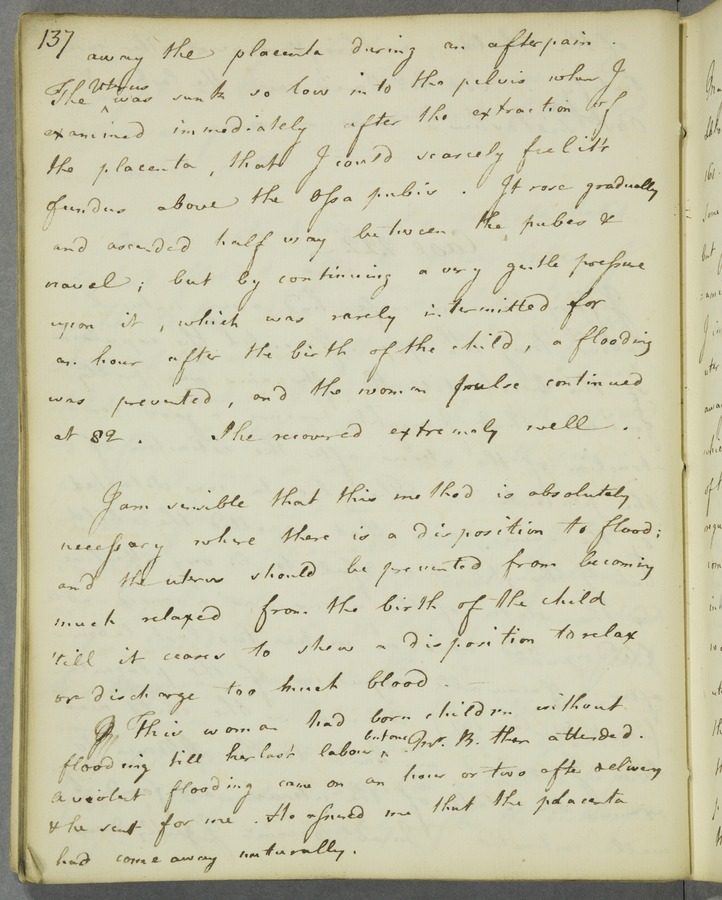 137
away the placenta during an afterpain.
The Uterus was sunk so low into the pelvis when I
examined immediately after the extraction of
the placenta, that I could scarcely feel its
fundus above the Ossa pubis. It rose gradually
and ascended half way between the pubes &
navel; but by continuing a very gentle pressure
upon it, which was rarely intermitted for
an hour after the birth of the child, a flooding
was prevented, and the woman pulse continued
at 82. She recovered extremely well.
I am sensible that this method is absolutely
necessary where there is a disposition to flood;
and the uterus should be prevented from becoming
much relaxed from the birth of the child
'till it ceases to shew a disposition to relax
or discharge too much blood.
This woman had born children without
flooding till her last labour but one Mr. B. then attended.
A violent flooding came on an hour or two after delivery
& he sent for me. He assured me that the placenta
had come away naturally.